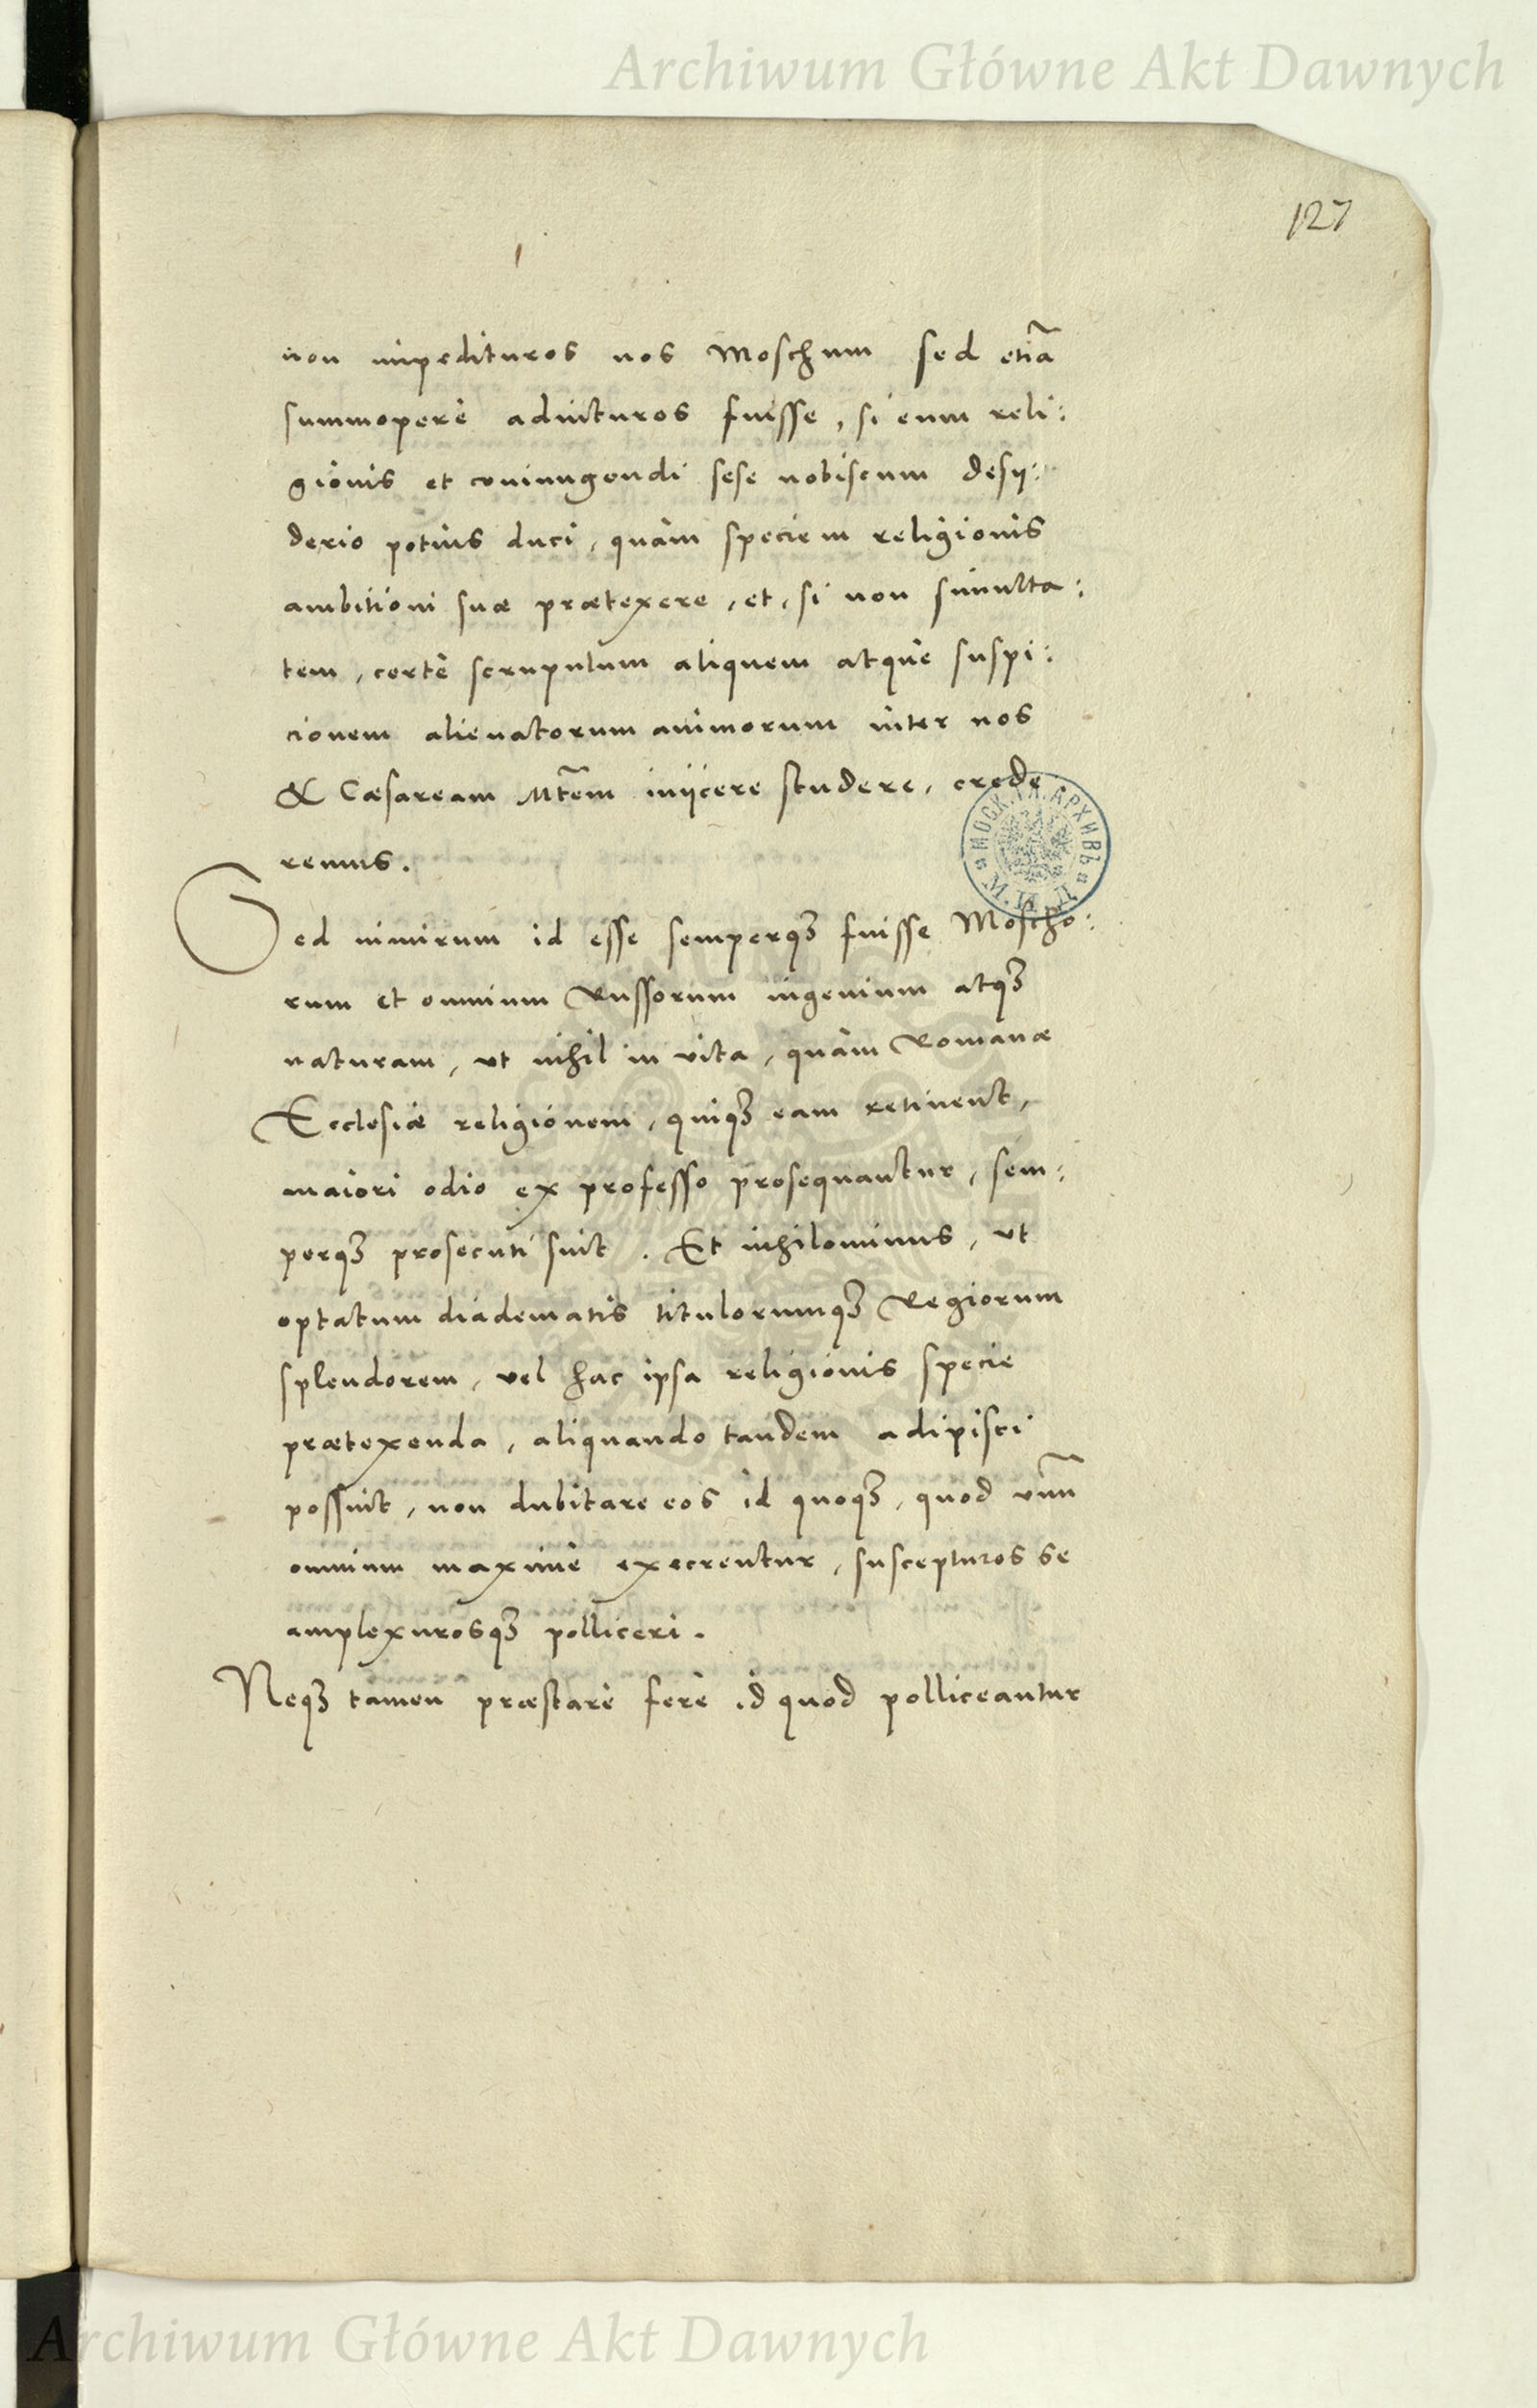 Archiwum Główne Akt Dawnych
127
non impedituros nos Moschum sed etiã
summoperè adiuturos fuisse, si eum reli:
gionis et coniungendi sese nobiscum desy:
derio potius duci, quàm speciem religionis
ambitioni suæ prætexere, et, si non simulta:
tem, certè scrupulum aliquem atque suspi:
cionem alienatorum animorum inter nos
& Cæsaream Mtẽm iniicere studere, crede
remus.
МОСК. ГЛ. АРХИВЪ
М. И. Д.
Sed nimirum id esse semperqꝫ fuisse Moscho:
rum et omnium Russorum ingenium atqꝫ
naturam, ut nihil in vita, quàm Romanæ
Ecclesiæ religionem, quiqꝫ eam retinent,
maiori odio ex professo prosequantur, sem:
perqꝫ prosecuti sint. Et nihilominus, ut
optatum diadematis titulorumqꝫ Regiorum
splendorem, vel hac ipsa religionis specie
prætexenda, aliquando tandem adipisci
possint, non dubitare eos id quoqꝫ, quod unũ
omnium maximè execrentur, suscepturos se
amplexurosqꝫ polliceri.
Neqꝫ tamen præstare ferè id quod polliceantur
Archiwum Główne Akt Dawnych